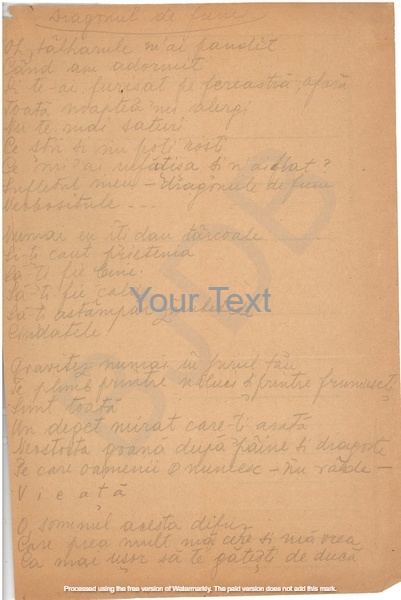 Dragonul de fum
Oh, tâlharule m'ai pândit
Când am adormit
Și te-ai furișat pe fereastră afară
Toată noaptea nu alergi
Nu te mai saturi
Ce știi și nu poți rosti
Ce mi-ai și n'a flat?
Sufletul meu - dragonule de fum
Neobositule - - -
Numai eu îți dau târcoale
Și-ți caut prietenia
Să-ți fie bine
Să-ți fie cald
Să-ți astâmpăr
Ciudatele
Your Text
BJDB
Gravitez numai în jurul tău
Te plimb printre năluci și printre frumuseți
Sunt toată
Un deget mirat care-ți arată
Neostoita goană după pâine și dragoste
Pe care oamenii o numesc - nu râde -
V i e a t ă
O, somnul acesta difuz
Care prea mult mă cere și mă vrea
Ca mai ușor să te gătești de ducă
Processed using the free version of Watermarkly. The paid version does not add this mark.